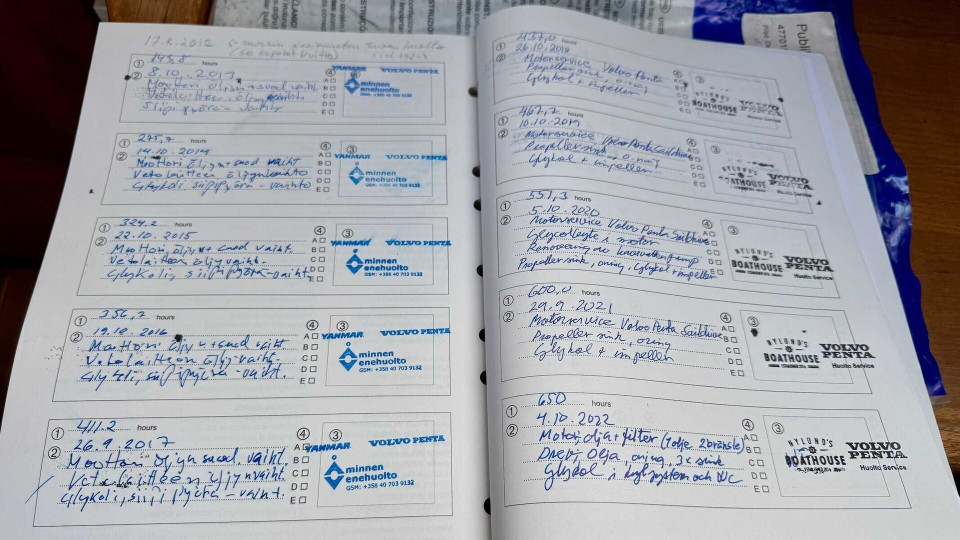 17.8.2012
① 145,8 hours
② 8.10.2013 ④ ③
Moottori öljyn + suod. vaiht. A
Vetolaitteen öljynvaihto B
Siipipyörän vaihto C
D
E
YANMAR VOLVO PENTA
minnen
enehuolto
GSM: +358 40 703 9132
① 275,7 hours
② 14.10.2014 ④ ③
Moottori öljyn + suod vaiht A
Vetolaitteen öljynvaihto B
Glykoli, siipipyörä - vaihto C
D
E
YANMAR VOLVO PENTA
minnen
enehuolto
GSM: +358 40 703 9132
① 324.2 hours
② 22.10.2015 ④ ③
Moottori, öljyn + suod vaiht. A
Vetolaitteen öljyvaiht. B
Glykoli, siipipyörä - vaiht. C
D
E
YANMAR VOLVO PENTA
minnen
enehuolto
GSM: +358 40 703 9132
① 356,2 hours
② 19.10.2016 ④ ③
Moottori öljyn + suod vaiht A
Vetolaitteen öljyvaiht. B
Glykoli, siipipyörä - vaiht. C
D
E
YANMAR VOLVO PENTA
minnen
enehuolto
GSM: +358 40 703 9132
① 411.2 hours
② 26.9.2017 ④ ③
Moottori öljyn suod vaiht. A
Vetolaitteen öljynvaiht. B
Glykoli, siipipyörä - vaiht. C
D
E
YANMAR VOLVO PENTA
minnen
enehuolto
GSM: +358 40 703 9132
① 437,0 hours
② 26.10.2018 ④ ③
Motorservice Volvo Penta A
Propeller sink, oring B
Glykol + impeller C
D
E
NYLUND'S
BOATHOUSE
VOLVO
PENTA
Huolto Service
① 467,2 hours
② 10.10.2019 ④ ③
Motorservice Volvo Penta Saildrive A
Propeller sink + oring B
Glykol + impeller C
D
E
NYLUND'S
BOATHOUSE
VOLVO
PENTA
Huolto Service
① 551,3 hours
② 5.10.2020 ④ ③
Motorservice Volvo Penta Saildrive A
Glycolbyte i motor B
Renovering av C
Propeller sink, oring, Glykol + impeller D
E
NYLUND'S
BOATHOUSE
VOLVO
PENTA
Huolto Service
① 600,0 hours
② 29.9.2021 ④ ③
Motorservice Volvo Penta Saildrive A
Propeller sink, oring B
Glykol + impeller C
D
E
NYLUND'S
BOATHOUSE
VOLVO
PENTA
Huolto Service
① 650 hours
② 4.10.2022 ④ ③
Motor olja + filter (1 olje 2 bränsle) A
Drev, Olja oring, 3x sink B
Glykol i kylsystem och WC C
D
E
NYLUND'S
BOATHOUSE
VOLVO
PENTA
Huolto Service